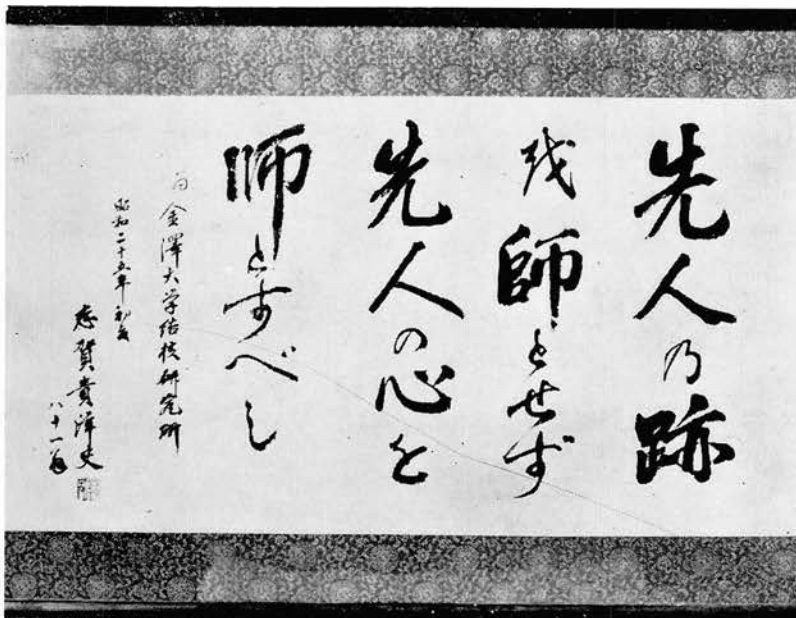 先人乃跡
越師とせず
先人の心を
師とすべし
為金澤大学结核研究所
昭和二十五年初夏
志賀貴洋史
八十一翁